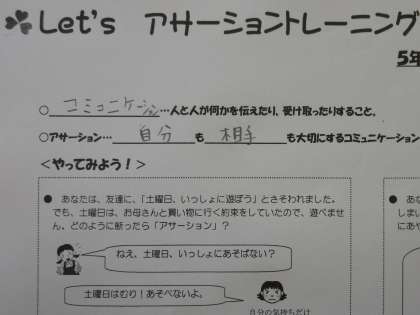 Let's アサーショントレーニング
5年
○コミュニケーション…人と人が何かを伝えたり、受け取ったりすること。
○アサーション… 自分 も 相手 も大切にするコミュニケーション
＜やってみよう！＞
● あなたは、友達に、「土曜日、いっしょに遊ぼう」とさそわれました。
でも、土曜日は、お母さんと買い物に行く約束をしていたので、遊べませ
ん。どのように断ったら「アサーション」？
ねえ、土曜日、いっしょにあそばない？
土曜日はむり！あそべないよ。
自分の気持ちだけ
● あな
しまい
にあや